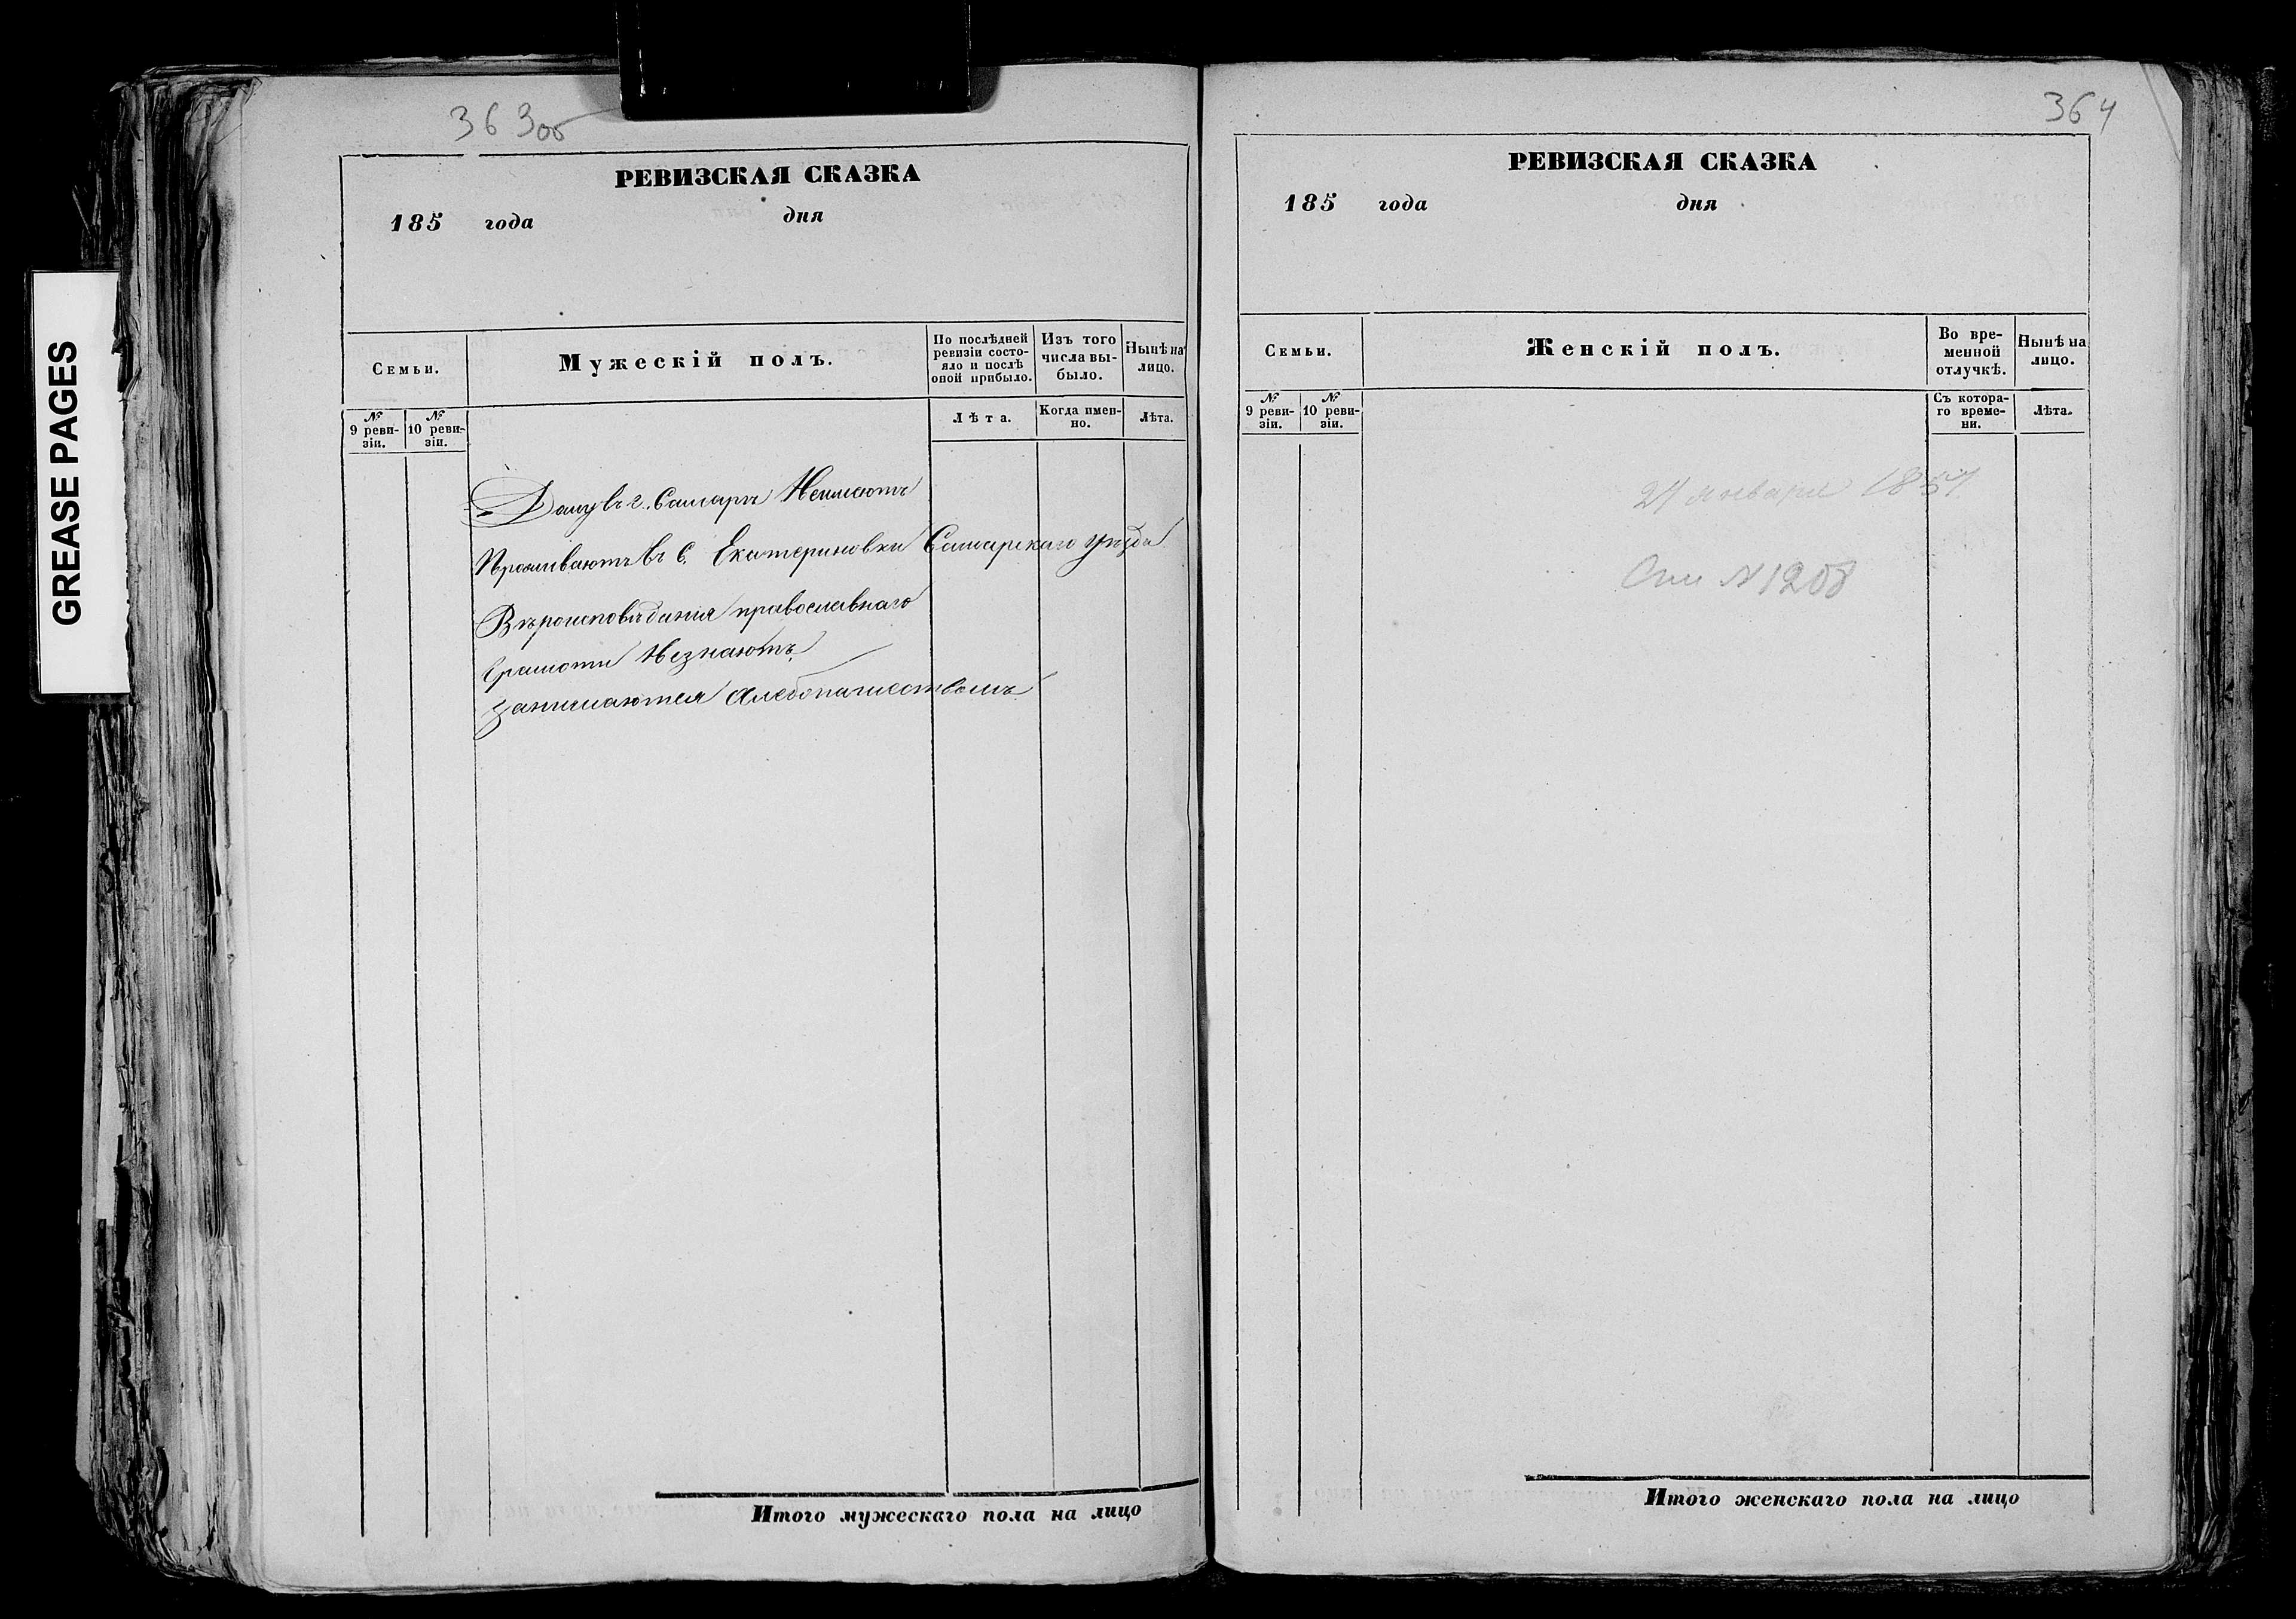 GREASE PAGES
363об
РЕВИЗСКАЯ СКАЗКА
185 года дня
Семьи.
Мужескій полъ.
По послѣдней ревизіи состояло и послѣ оной прибыло.
Изъ того числа выбыло.
Нынѣ на лицо.
№ 9 ревизіи.
№ 10 ревизіи.
Лѣта.
Когда именно.
Лѣта.
Дому въ г. Самарѣ Неимеютъ
Проживаютъ въ С. Екатериновки Самарскаго уѣзда
Вѣроисповѣданія православнаго
Грамоти Незнаютъ
Занимаются хлебопашествомъ
Итого мужескаго пола на лицо
364
РЕВИЗСКАЯ СКАЗКА
185 года дня
Семьи.
Женскій полъ.
Во временной отлучкѣ.
Нынѣ на лицо.
№ 9 ревизіи.
№ 10 ревизіи.
Съ котораго времени.
Лѣта.
января 185
№ 1208
Итого женскаго пола на лицо